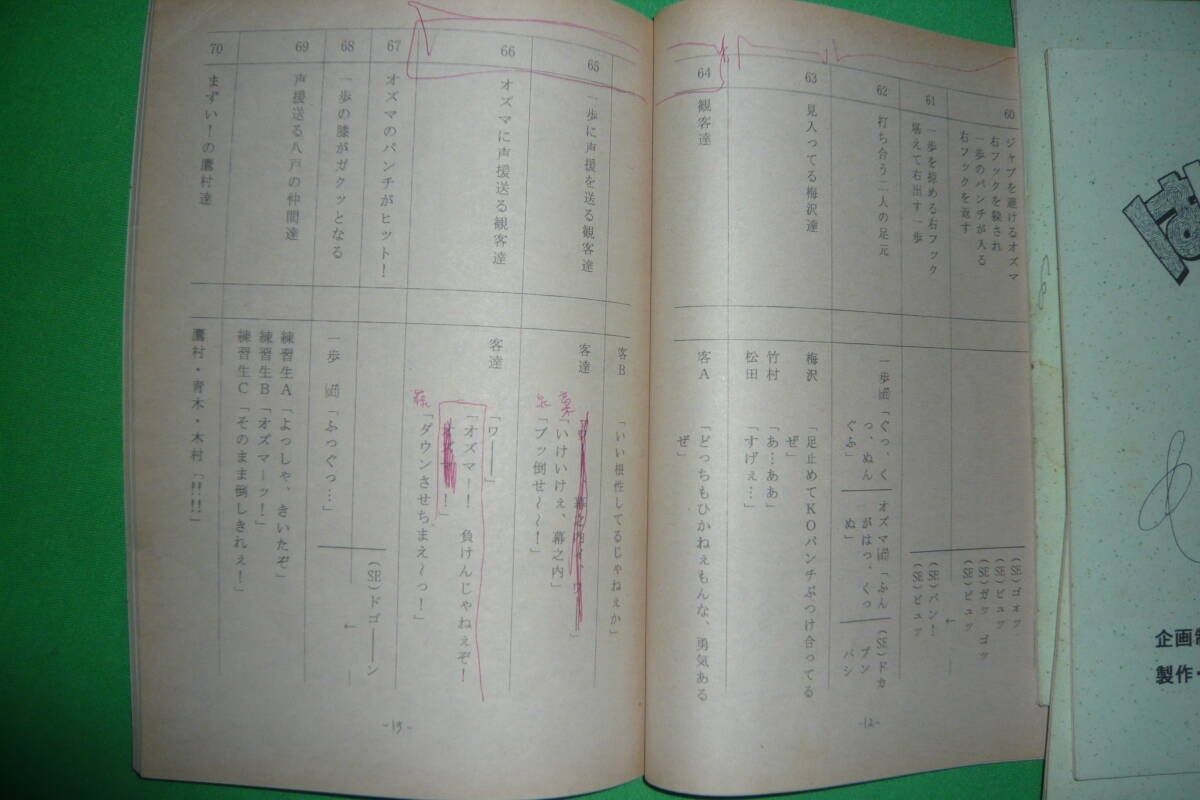 60
ジャブを避けるオズマ
右フックを殺され
一歩のパンチが入る
右フックを返す
(SE)ゴォッ
(SE)ビュッ
(SE)ガッ ゴッ
(SE)ビュッ
61
一歩を掠める右フック
堪えて右出す一歩
(SE)パン!
(SE)ビュッ
62
打ち合う二人の足元
一歩 「ぐっ、く
っ、ぬん
ぐふ」
オズマ 「ふん
がはっ、くっ
ぬ」
(SE)ドカ
ブン
バシ
63
見入ってる梅沢達
梅沢 「足止めてKOパンチぶつけ合ってる
ぜ」
竹村 「あ…ああ」
松田 「すげぇ…」
64
観客達
客A 「どっちもひかねぇもんな、勇気ある
ぜ」
-12-
客B 「いい根性してるじゃねぇか」
65
一歩に声援を送る観客達
客達
「いけいけぇ、幕之内」
「ブッ倒せ~~!」
66
オズマに声援送る観客達
客達 「ワ――」
「オズマー! 負けんじゃねぇぞ!
!」
「ダウンさせちまえ~っ!」
67
オズマのパンチがヒット!
(SE)ドゴ――ン
68
一歩の膝がガクッとなる
一歩 「ふっぐっ…」
69
声援送る八戸の仲間達
練習生A 「よっしゃ、きいたぞ」
練習生B 「オズマーッ!」
練習生C 「そのまま倒しきれぇ!」
70
まずい!の鷹村達
鷹村・青木・木村 「!!!!」
-13-
企画
製作・